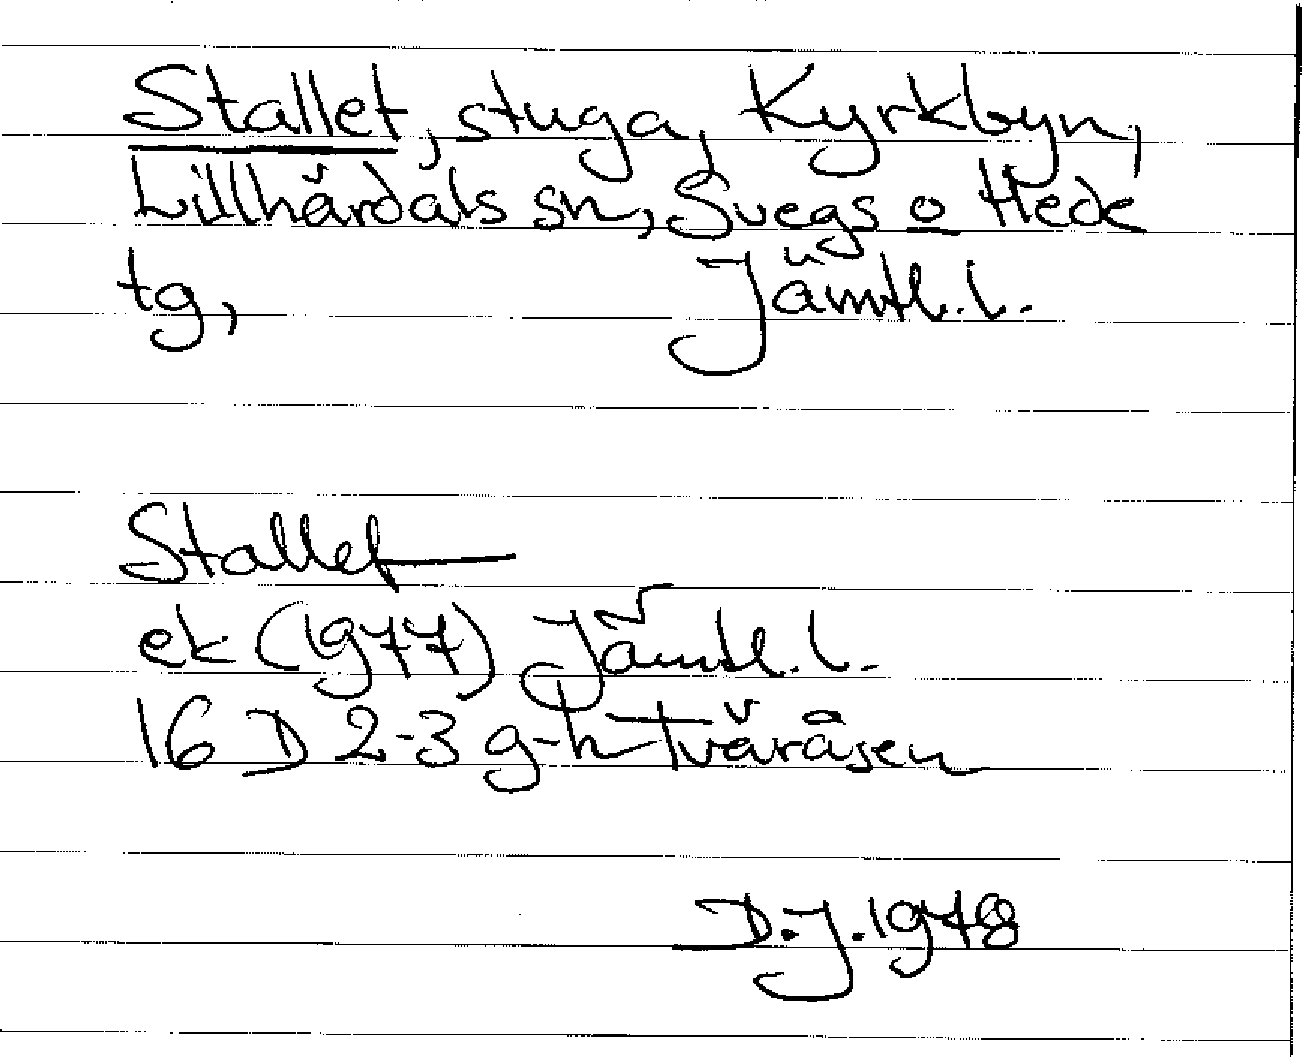 Stallet, stuga, Kyrkbyn,
Lillhärdals sn, Svegs o Hede
tg, Jämtl. l.
Stallet
ek (1977) Jämtl. l.
16 D 2-3 g-h Tväråsen
D.J. 1978